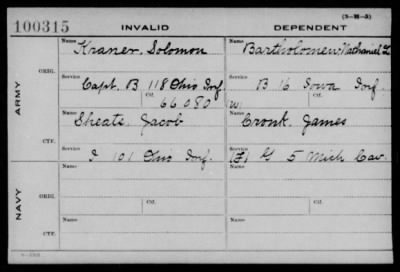 (3-M-3)
100315 INVALID DEPENDENT
ARMY
ORIG.
Name Kraner, Solomon
Name Bartholomew, Nathaniel L
Service Ctf.
Capt. B 118 Ohio Inf.
66080
Service Ctf.
B 16 Iowa Inf.
(W)
CTF.
Name Sheats, Jacob
Name Cronk, James
Service Ctf.
I 101 Ohio Inf.
Service Ctf.
(F) G 5 Mich Cav.
NAVY
ORIG.
Name Ctf.
Name Ctf.
CTF.
Name
Name